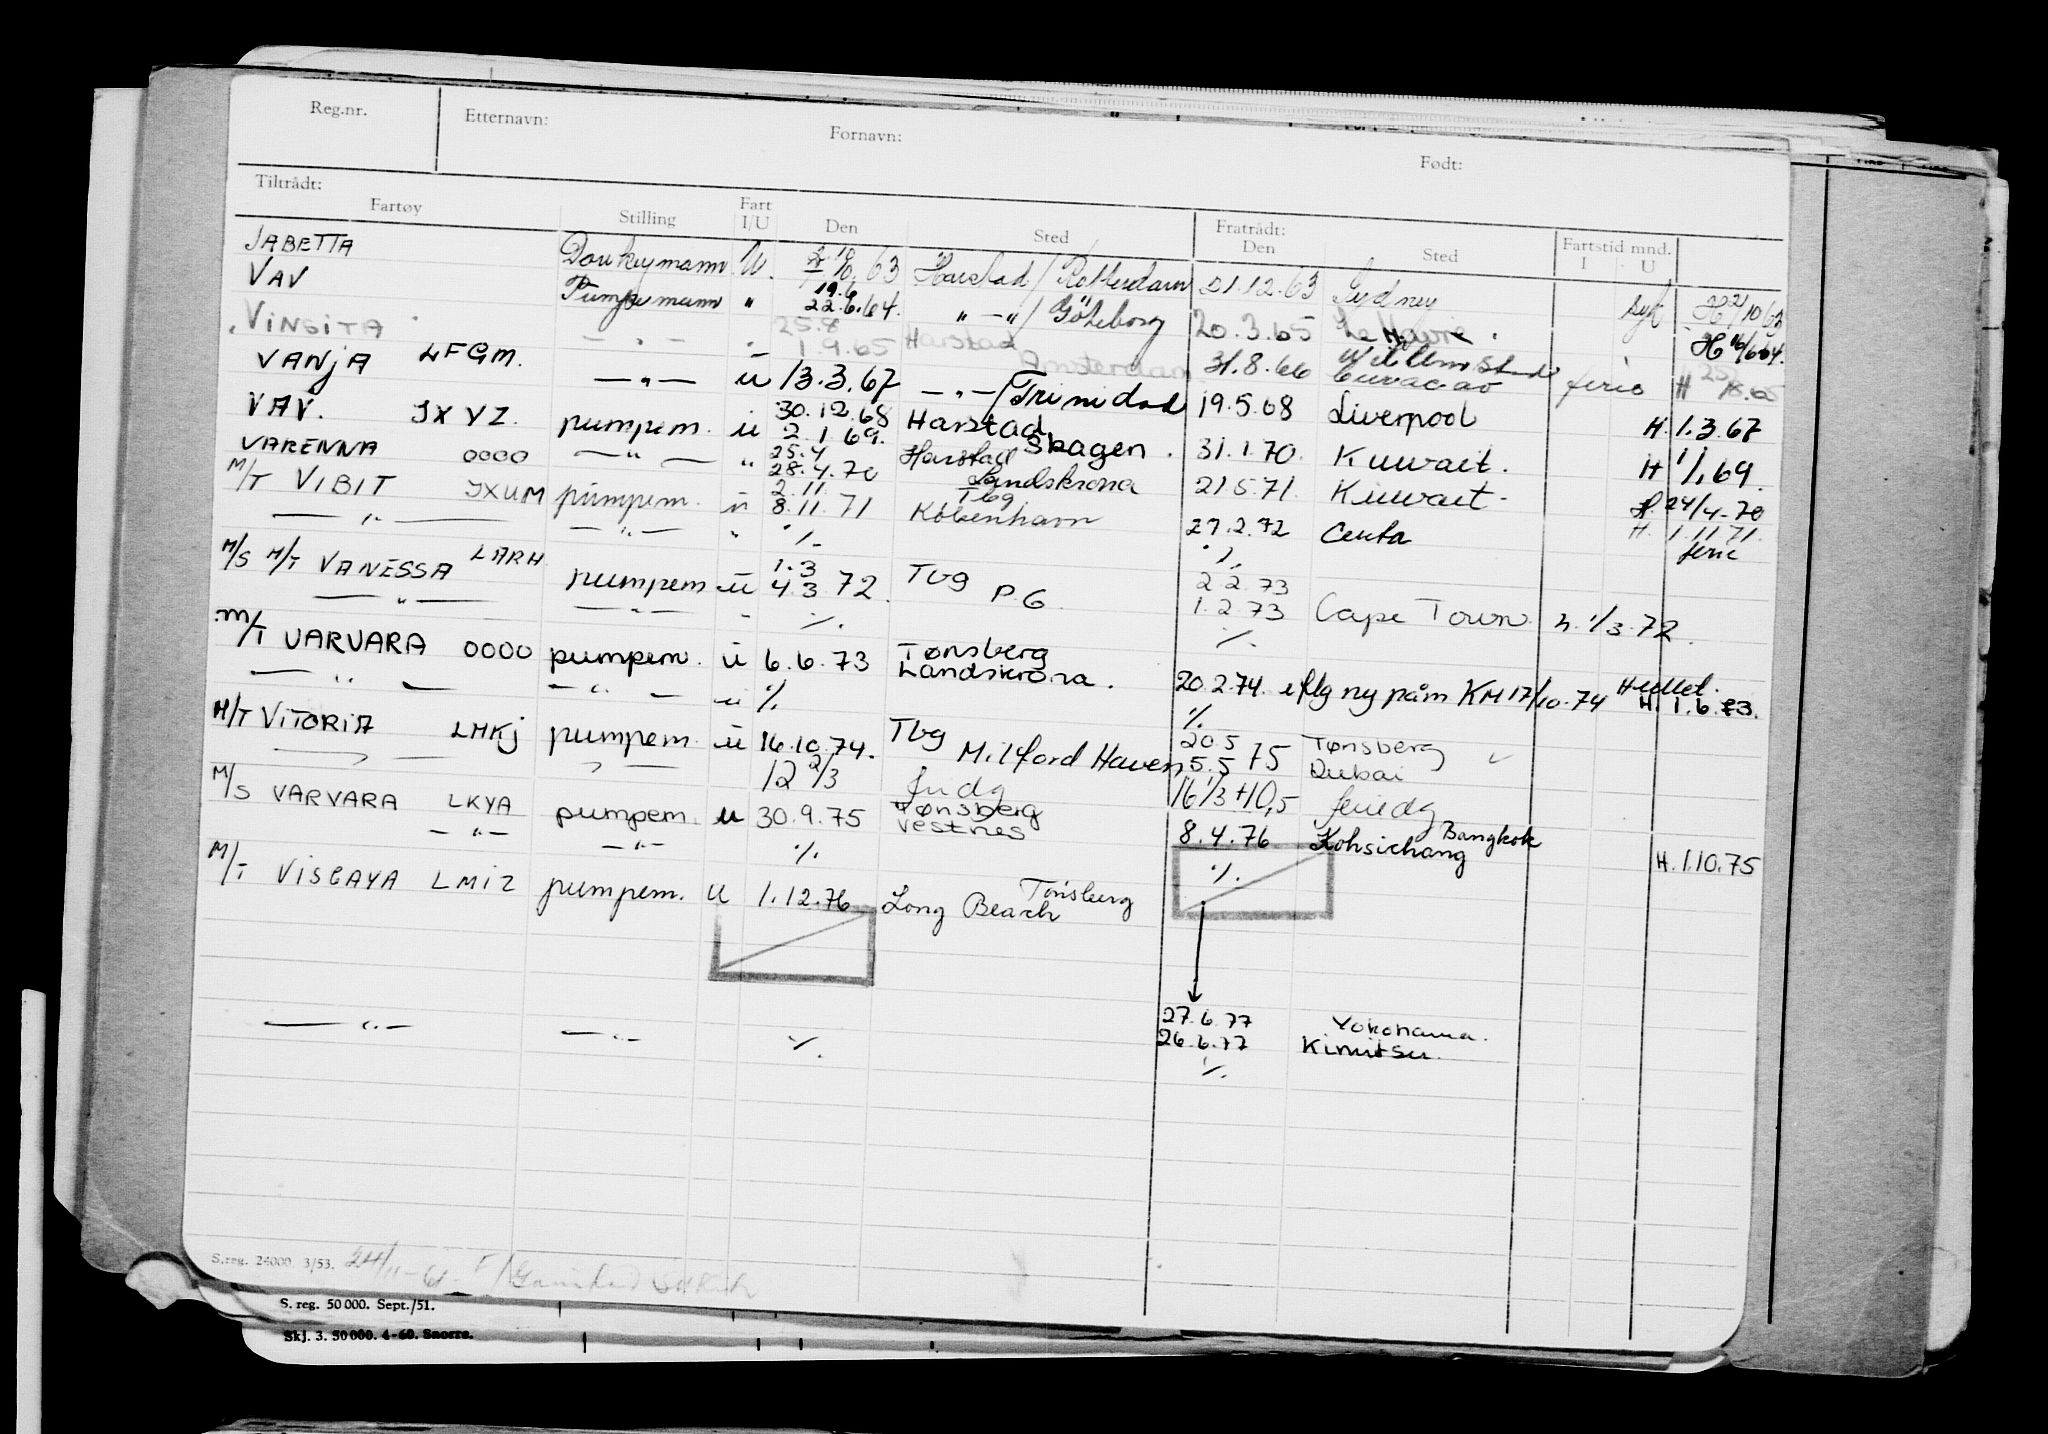 Reg.nr. Etternavn: Fornavn: Født:
Tiltrådt: Fratrådt:
Fartøy Stilling Fart I/U Den Sted Den Sted Fartstid mnd. I U
JABETTA Donkeymann U. 63 Harstad / Rotterdam 21.12.63 Sydney syk H 2/10 63
VAV Pumpemann " 19.6 22.6.64. " — " / Göteborg 20.3.65 Le Havre H 16/6 64.
VINGITA — " — " 25.8 1.9.65 Harstad Amsterdam 31.8.66 Willemstad Curacao ferie H 25/8.65
VANJA LFGM. — " — u 13.3.67 — " — / Trinidad 19.5.68 Liverpool H. 1.3.67
VAV. JXYZ. pumpem. u 30.12.68 2.1.69. Harstad Skagen. 31.1.70. Kuwait. H 1/1.69.
VARENNA OOOO — " — " 25.4 28.4.70 Harstad Landskrona 21.5.71. Kuwait. H. 24/4-70
M/T VIBIT JXUM pumpem. u 2.11 8.11.71 Tbg København 27.2.72 Ceuta H. 1.11.71. ferie
— " — — " — " ·/. ·/.
M/S M/T VANESSA LARH pumpem u 1.3 4.3.72. Tbg P.G. 2.2.73 1.2.73 Cape Town h. 1/3.72.
— " — — " — " ·/. ·/.
M/T VARVARA OOOO pumpem. u 6.6.73 Tønsberg Landskrona. 20.2.74. eflg ny påm KM 17/10.74 H. 1.6.73.
— " — — " — u ·/. ·/.
M/T VITORIA LMKJ pumpem. u 16.10.74. Tbg Milford Haven 20.5 5.5 75 Tønsberg Dubai
— " — — " — 12 2/3 16 1/3 + 10,5 feriedg
M/S VARVARA LKYA pumpem. u 30.9.75 Tønsberg Vestnes 8.4.76 Kohsichang Bangkok H. 1.10.75
— " — — " — ·/. ·/.
M/T VISCAYA LMIZ pumpem. U 1.12.76 Long Beach Tønsberg
27.6.77 Yokohama.
26.6.77 Kimitsu.
— " — — " — ·/. ·/.
S.reg. 24000. 3/53.
S. reg. 50 000. Sept./51.
Skj. 3. 50 000. 4-60. Snorre.